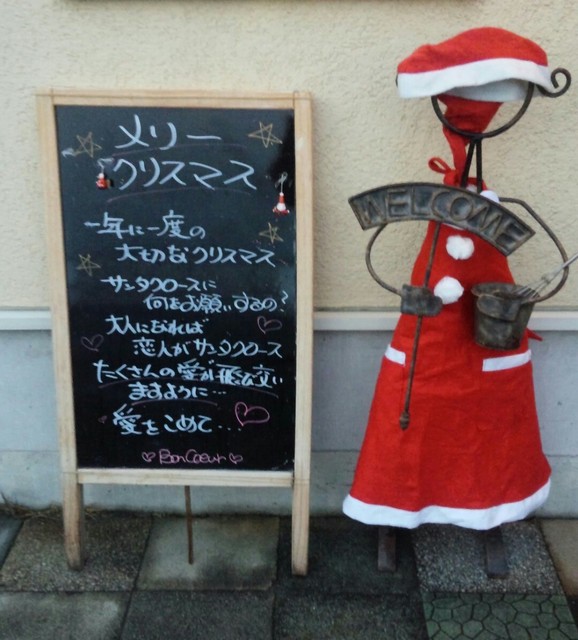 メリー
クリスマス
一年に一度の
大切なクリスマス
サンタクロースに
何をお願いするの?
大人になれば
恋人がサンタクロース
たくさんの愛が飛び交い
ますように…
愛をこめて…
Bon Coeur
WELCOME